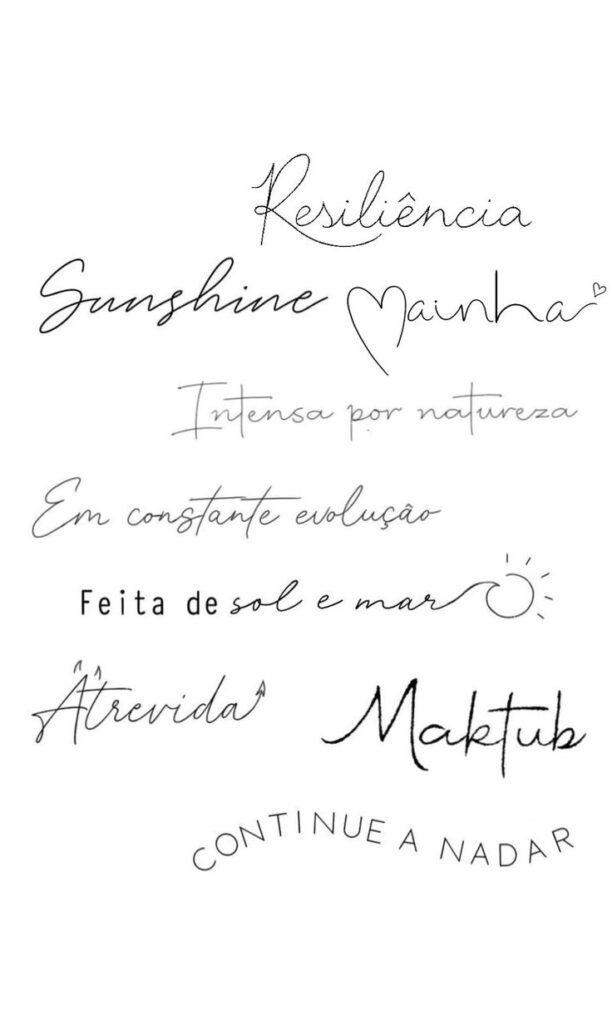 Resiliência
Sunshine Mainha
Intensa por natureza
Em constante evolução
Feita de sol e mar
Atrevida Maktub
CONTINUE A NADAR